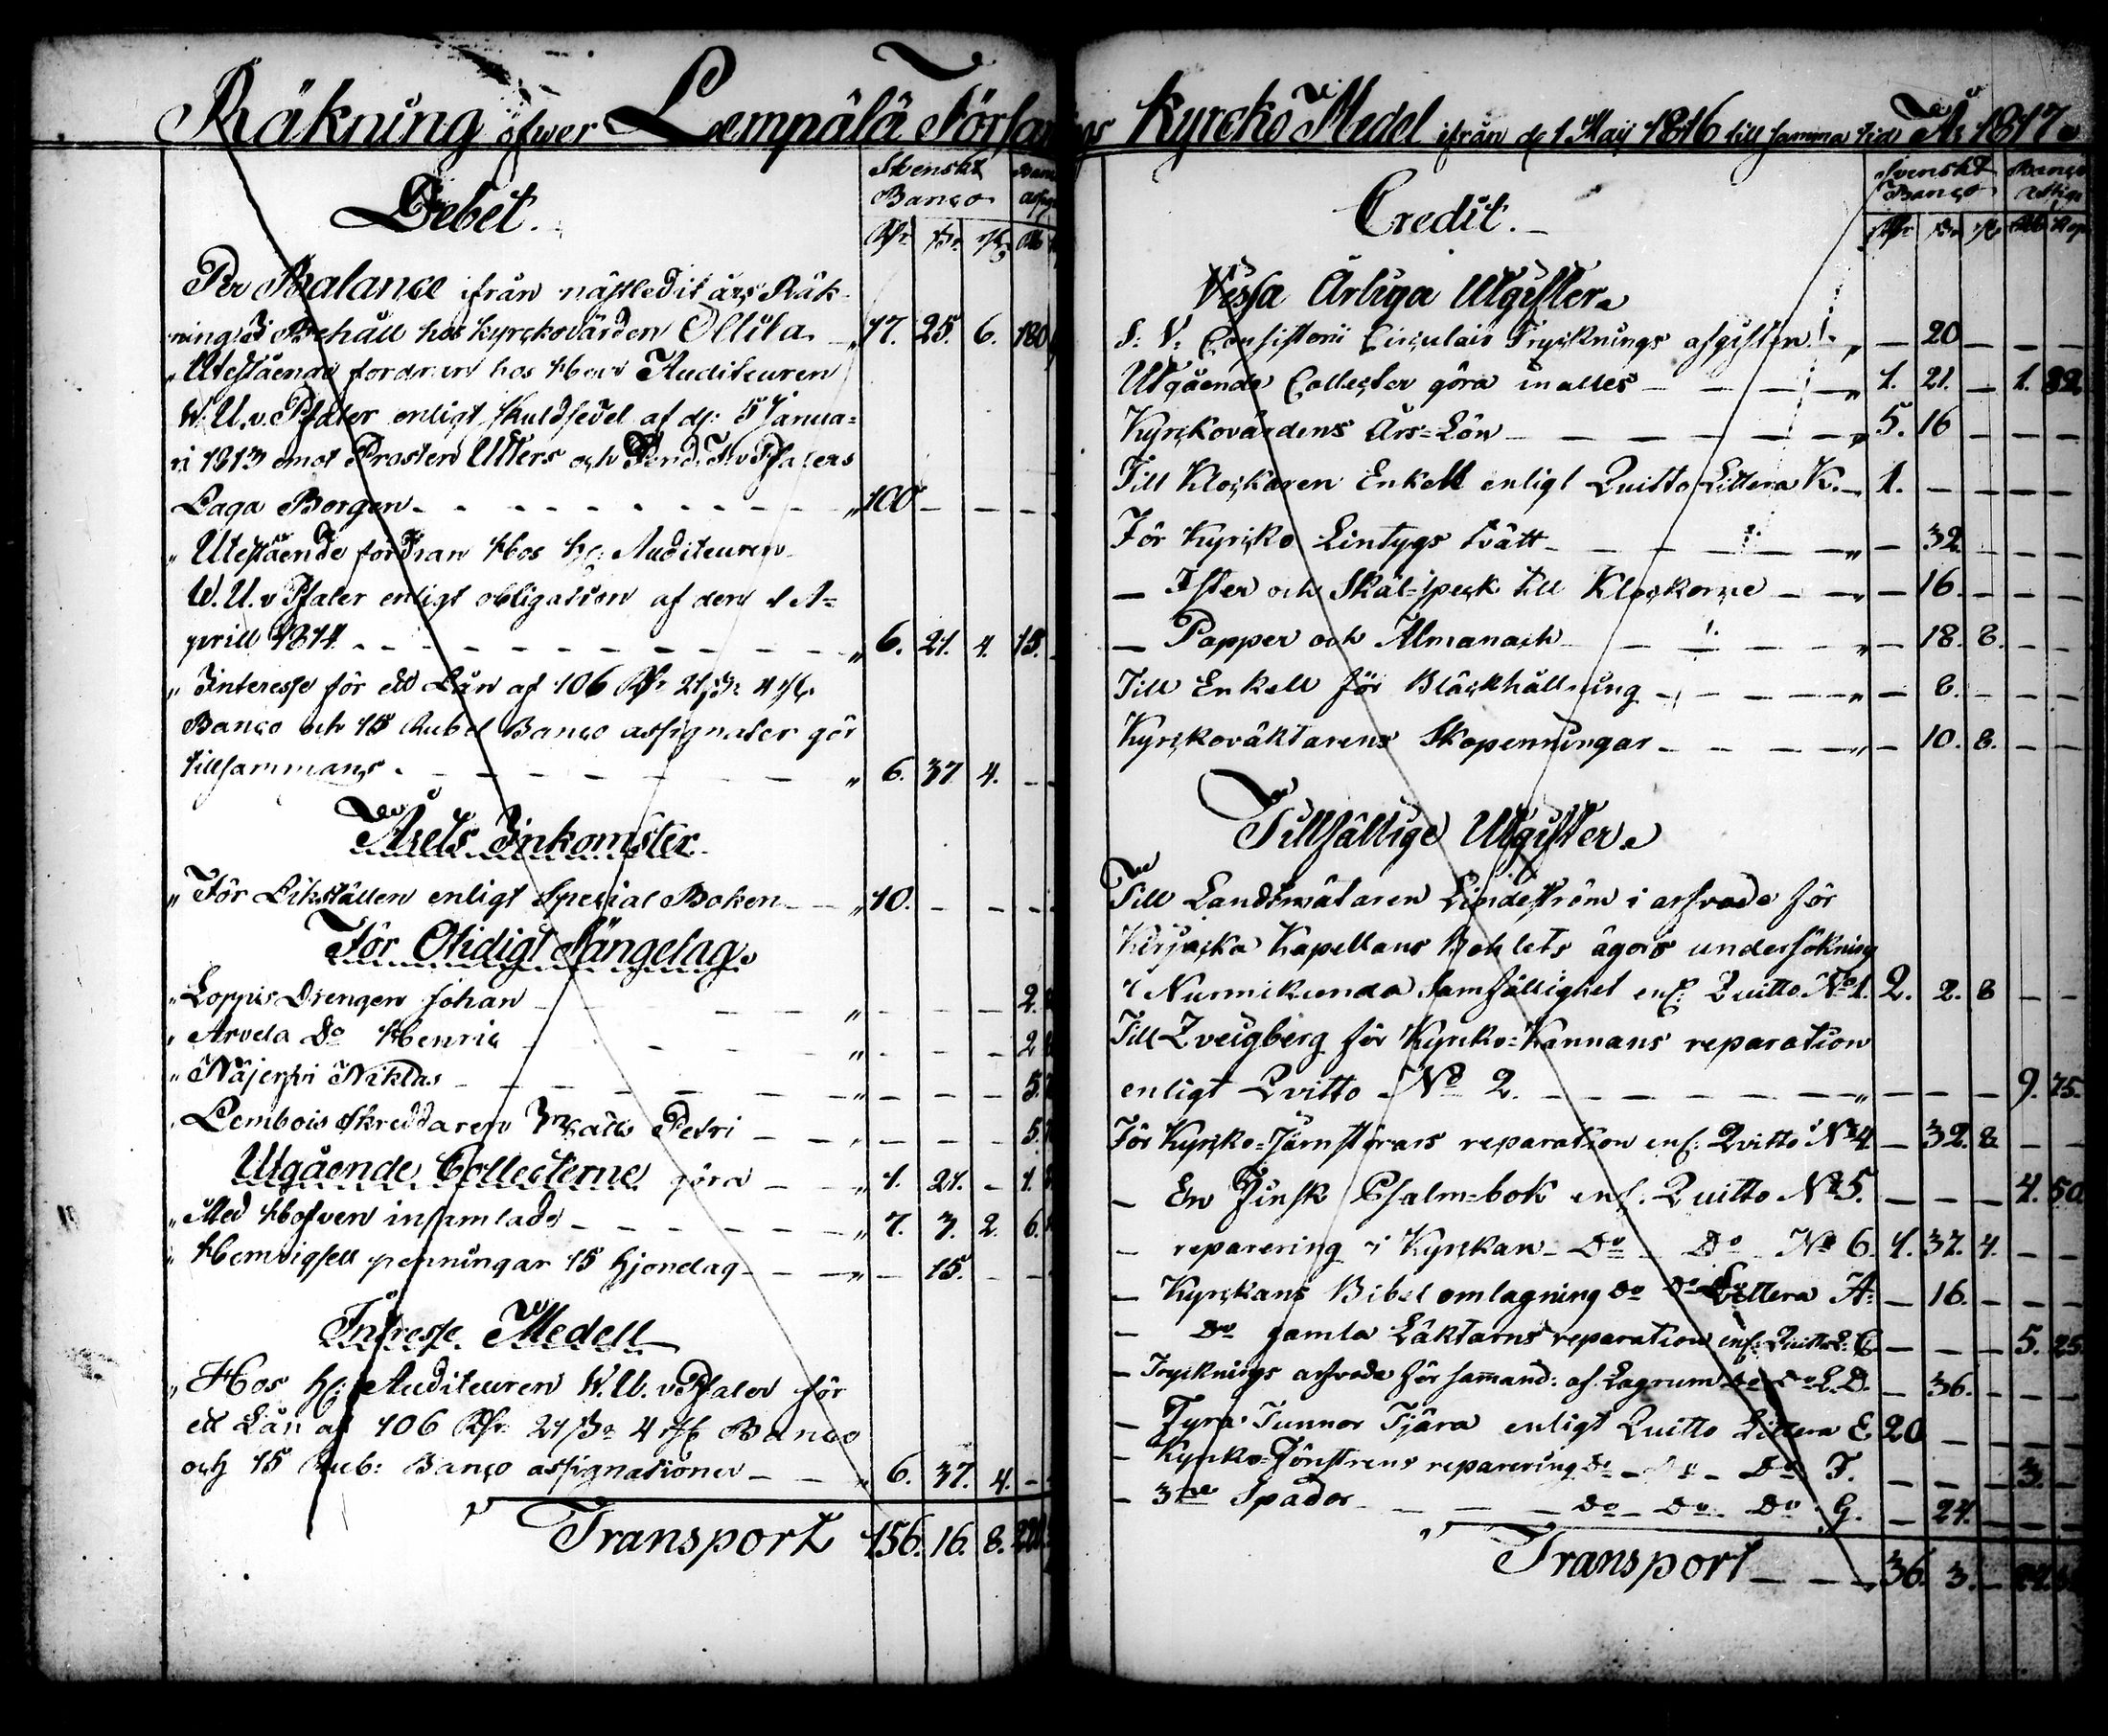 Räkning öfwer Lempälä Försam
Svenskt Banco
Debet.
Rdr sk. rst. Rub
Per Balance ifrån nästledit års Räk-
ning i Behåll hos Kyrckovärden Ollila 17. 25. 6. 180
" Utestående fordran hos Herr Auditeuren
W. U. v Pfaler enligt skuldsedel af d: 5 Janua-
ri 1813 emot Prosten Utters och
Laga Borgen " 100 — — —
" Utestående fordran Hos H: Auditeuren
W. U. v Pfaler enligt obligation af den 1 A-
prill 1814. " 6. 21. 4. 15.
" Interesse för ett Lån af 106 Rdr 21 sk. 4 rst.
Banco och 15 Rubel Banco assignater gör
tillsammans " 6. 37. 4. —
Årets Inkomster
" För Likställen enligt Special Boken " 10. — — —
För Otidigt Sängelag.
" Loppis Drengen Johan " — — — 2.
" Arvela Do Henric " — — — 2
" Näjerhi Niklas " — — — 5.
" Lembois Skreddaren Matts Petri — — — 5.
Utgående Collecterne göra " 1. 21. — 1.
" Med Hofven insamlade " 7. 3. 2. 6.
" Hemvigsell penningar 15 hjonelag " — 15. — —
Intresse Medell
" Hos H: Auditeuren W. U. v Pfaler för
ett Lån af 106 Rdr 21 sk. 4 rst. Banco
och 15 Rub: Banco assignationer " 6. 37. 4. —
Transport 156. 16. 8. 221.
Kyrcko Medel ifrån d: 1 Maij 1816 till samma tid År 1817.
Svenskt Banco Banco Assign
Credit.
Rdr sk. rst Rub Kop
Vissa Årliga Utgifter.
S: V: Consistorii Circulair Trycknings afgiften " — 20 — — —
Utgående Collecter göra in alles " 1. 21. — 1. 32.
Kyrckovärdens Års-Lön " 5. 16 — — —
Till Klockaren Enkell enligt Quitto Littera K. 1. — — — —
För Kyrcko Lintygs tvätt " — 32. — — —
— Ister och Skäl-speck till Klockorne " — 16. — — —
— Papper och Almanach " — 18. 8. — —
Till Enkell för Bläckhållning " — 8. — — —
Kyrckoväktarens Skopenningar " — 10. 8. — —
Tillfällige Utgifter.
Till Landtmätaren Lindeström i arfvode för
Kapellans Bohlets ägors undersökning
i Nurmikunda Samfällighet enl: Quitto No 1. 2. 2. 8 — —
Till Zveigberg för Kyrcko-Kannans reparation
enligt Qvitto No 2. " — — — 9. 75.
För Kyrcko-Järnstörars reparation enl: Qvitto No 4 — 32. 8. — —
— En Finsk Psalm-bok enl. Quitto No 5. — — — 4. 50.
— reparering i Kyrckan Do Do No 6. 1. 37. 4. — —
— Kyrckans Bibel omlagning do do Littera A: — 16. — — —
— Do gamla Läktarns reparation enl: Quitto L: C — — — 5. 25.
— Trycknings arfvode för sammand: af Lagrum do do L. D. — 36. — — —
— Fyra Tunnor Tjära enligt Quitto Littera E 20 — — — —
— Kyrcko-Fönstrens reparering Do Do Do F. — — — 3. —
— 3ne Spador Do Do Do G. — 24. — — —
Transport " 36. 3. —